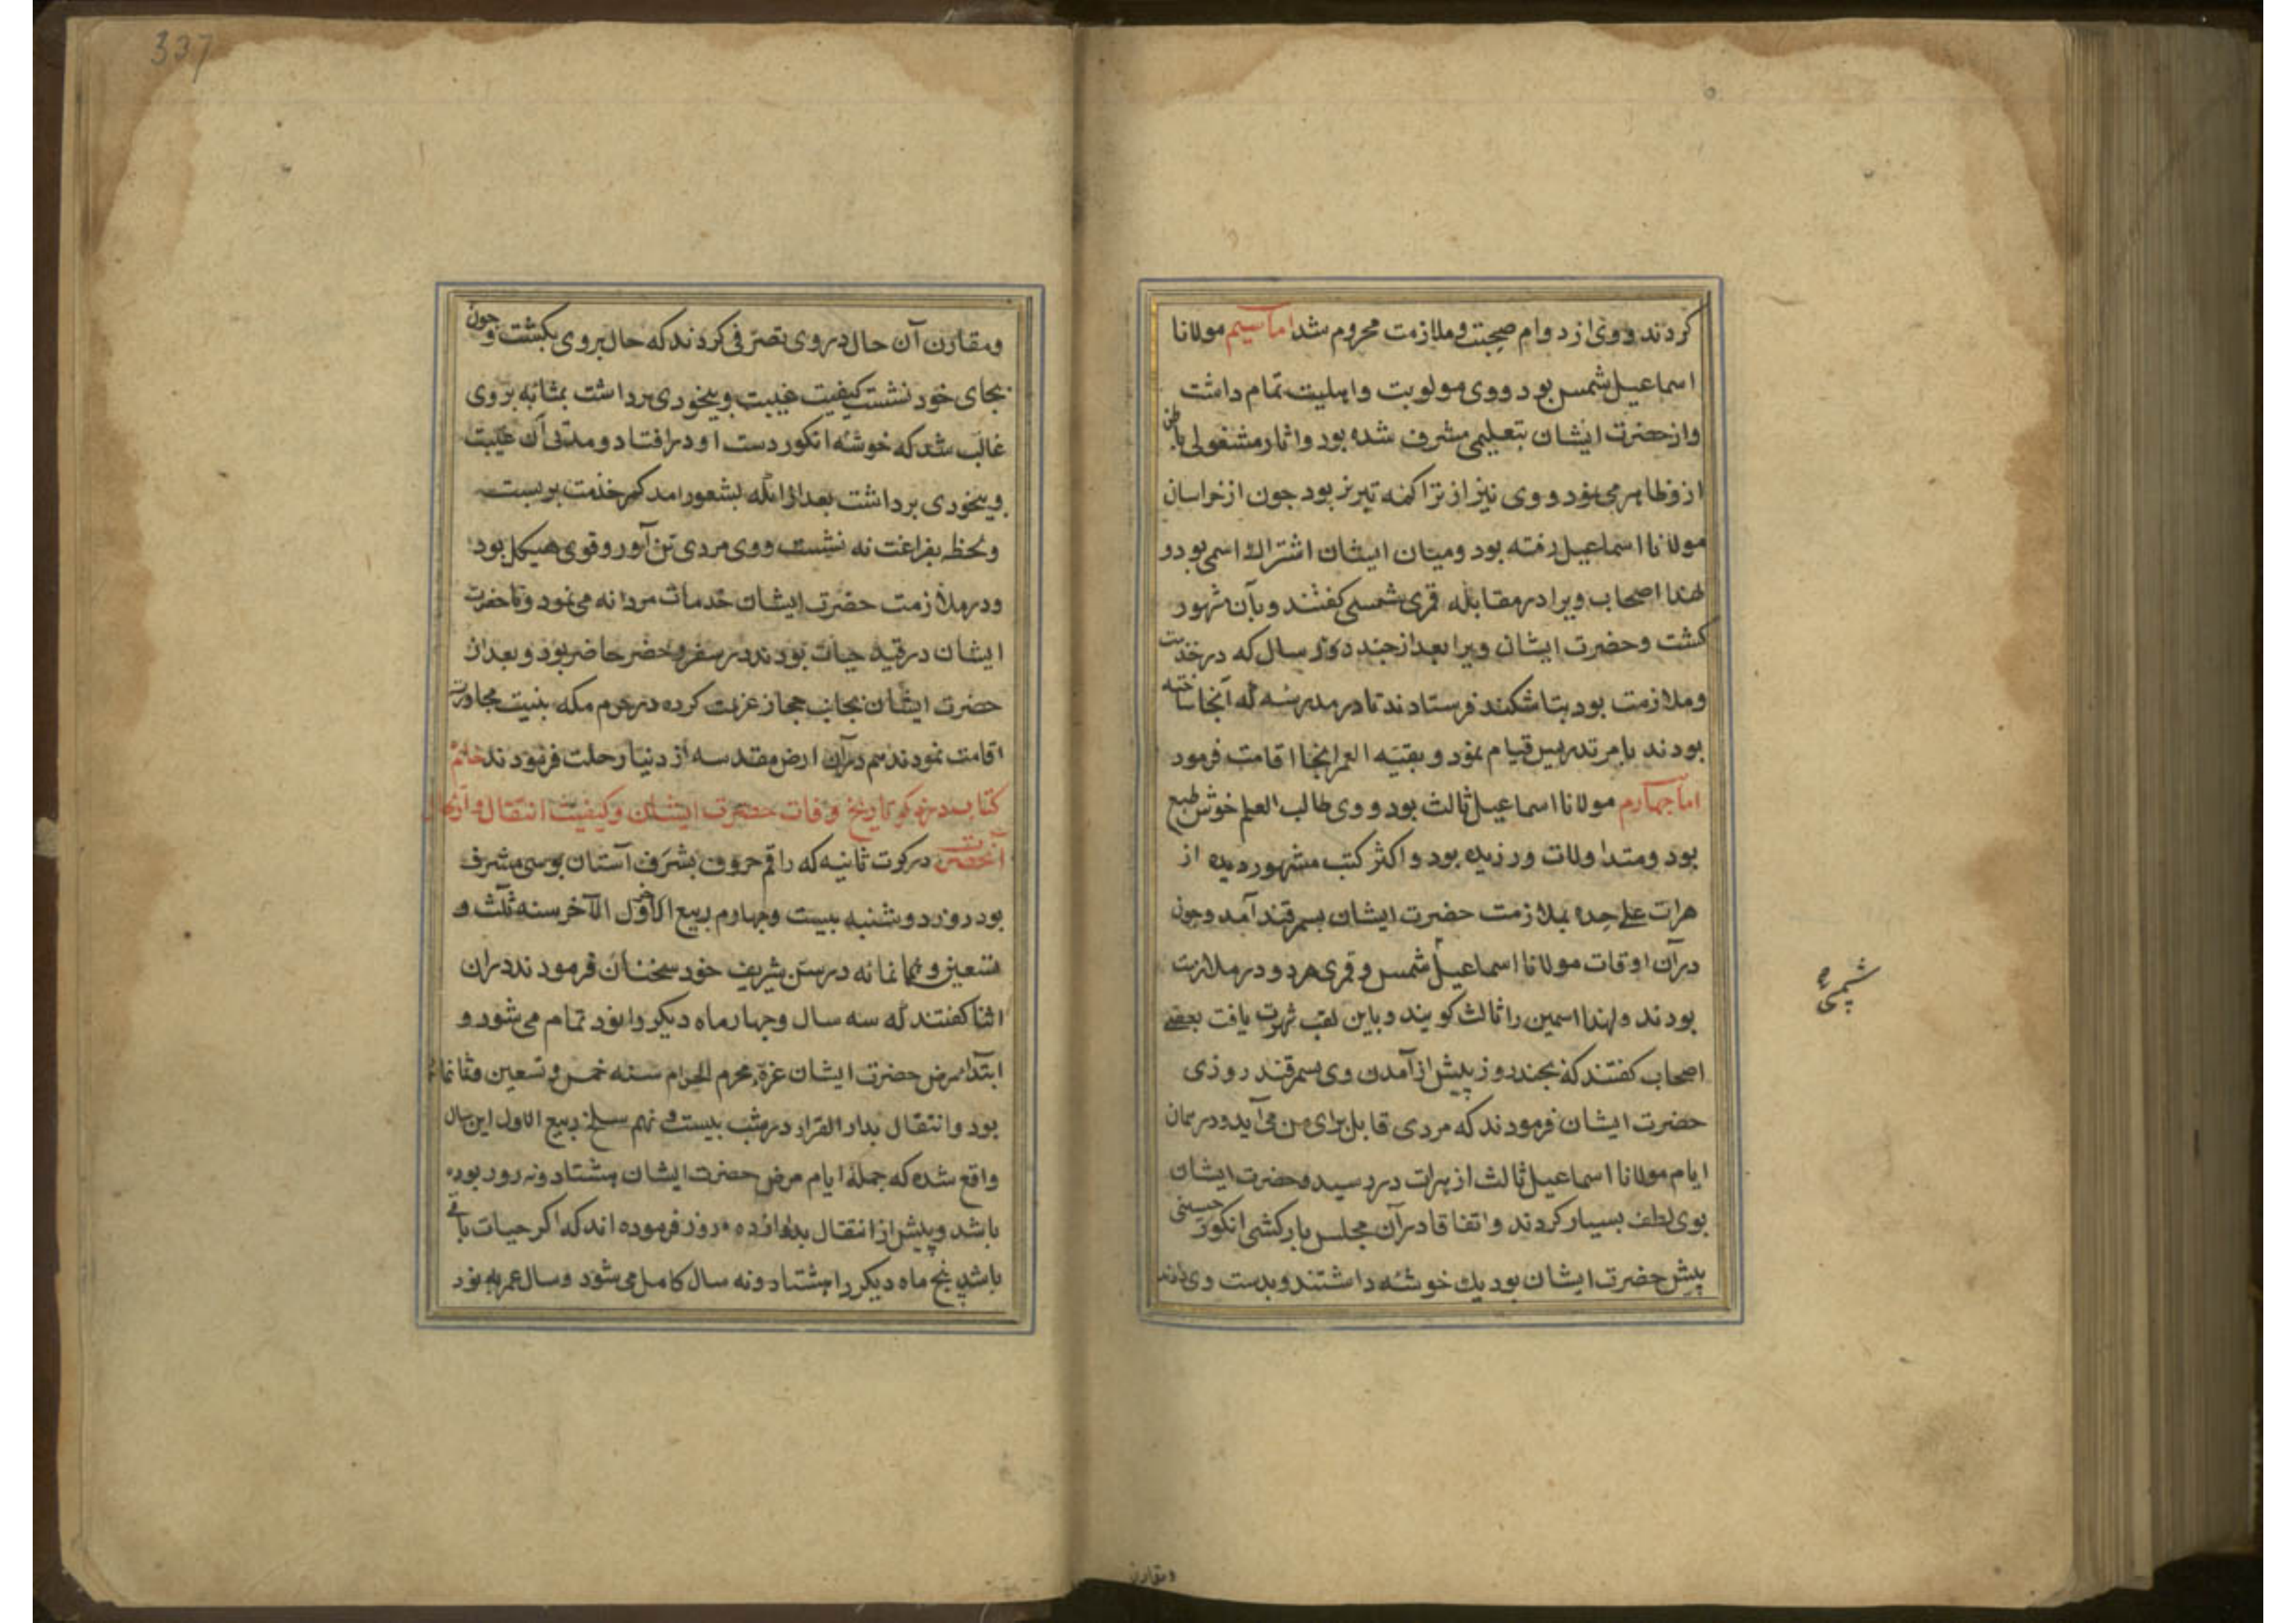 کردند و وی از دوام صحبت و ملازمت محروم شد اما سیم مولانا
اسماعیل شمس بود و وی مولویت و اهلیت تمام داشت
و از حضرت ایشان بتعلیمی مشرف شده بود و اثار مشغولی باطن
از و ظاهر می نمود و وی نیز از تراکمه تبریز بود جون از خراسان
مولانا اسماعیل رفته بود و میان ایشان اشتراك اسمی بود و
لهذا اصحاب ویرا در مقابله قمری شمسی کفتند و بآن مشهور
کشت و حضرت ایشان ویرا بعد از جند سال که در خدمت
و ملازمت بود بتاشکند فرستادند تا در مدرسه که آنجا ساخته
بودند بامر تدریس قیام نمود و بقیه العمر انجا اقامت فرمود
اما جهارم مولانا اسماعیل ثالث بود و وی طالب العلم خوش طبع
بود و متداولات ورزیده بود و اکثر کتب مشهور دیده از
هرات علی حده بملازمت حضرت ایشان بسمرقند آمد و جون
در آن اوقات مولانا اسماعیل شمس و قمری هر دو در ملازمت
بودند و لهذا اسمین را ثالث کویند و باین لقب شهرت یافت بعضی
شمسی
اصحاب کفتند که بجند روز پیش از آمدن وی بسمرقند روزی
حضرت ایشان فرمودند که مردی قابل برای من می آید و در همان
ایام مولانا اسماعیل ثالث از هرات در رسید و حضرت ایشان
بوی لطف بسیار کردند و اتفاقا در آن مجلس بارکشی انکور حسینی
پیش حضرت ایشان بود یك خوشه داشتند و بدست وی دادند
و مقارن
337
و مقارن آن حال در وی تصرفی کردند که حال بر وی بکشت و جون
بجای خود نشست کیفیت غیبت و بیخودی برداشت بمثابه بر وی
غالب شد که خوشه انکور دست او در افتاد و مدتی آن غیبت
و بیخودی برداشت بعد از انکه بشعور امد کمر خدمت بر بست
و لحظه بفراغت نه نشست و وی مردی تن آور و قوی هیکل بود
و در ملازمت حضرت ایشان خدمات مردانه می نمود و تا حضرت
ایشان در قید حیات بودند در سفر و حضر حاضر بود و بعد از
حضرت ایشان بجانب حجاز عزیمت کرده در حرم مکه بنیت مجاورت
اقامت نمودند هم در آن ارض مقدسه از دنیا رحلت فرمودند خاتمه
کتاب در ذکر تاریخ وفات حضرت ایشان و کیفیت انتقال و ارتحال
آنحضرت در کرت ثانیه که راقم حروف بشرف آستان بوسی مشرف
بود روز دوشنبه بیست و جهارم ربیع الاول الآخر سنه ثلث و
تسعین و ثمانمانه در سن شریف خود سخنان فرمودند در ان
اثنا کفتند که سه سال و جهار ماه دیکر را نود تمام می شود و
ابتداء مرض حضرت ایشان غره محرم الحرام سنه خمس و تسعین و ثمانمائه
بود و انتقال بدار القرار در شب بیست و نهم سلخ ربیع الاول این سال
واقع شده که جملهٔ ایام مرض حضرت ایشان هشتاد و نه روز بوده
باشد و پیش از انتقال بدوازده روز فرموده اند که اکر حیات باقی
باشد پنج ماه دیکر را هشتاد و نه سال کامل می شود و سال عمر به نود